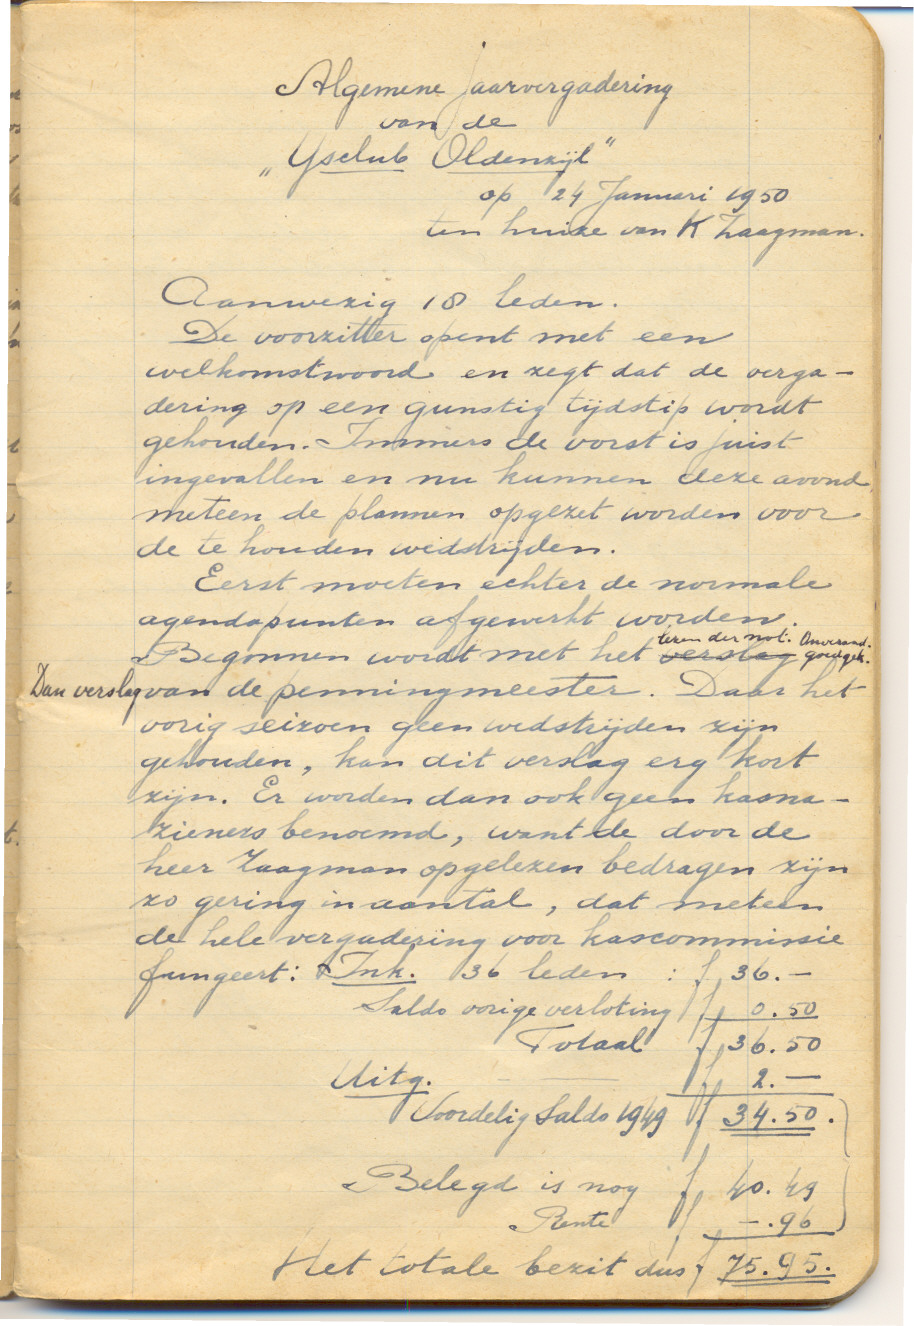 Algemene jaarvergadering
van de
„Ysclub Oldenzijl"
op 24 Januari 1950
ten huize van K Zaagman.
Aanwezig 18 leden.
De voorzitter opent met een
welkomstwoord en zegt dat de verga-
dering op een gunstig tijdstip wordt
gehouden. Immers de vorst is juist
ingevallen en nu kunnen deze avond
meteen de plannen opgezet worden voor
de te houden wedstrijden.
Eerst moeten echter de normale
agendapunten afgewerkt worden.
lezen der not. Onverand.
Begonnen wordt met het verslag goedgek.
Dan verslag van de penningmeester. Daar het
vorig seizoen geen wedstrijden zijn
gehouden, kan dit verslag erg kort
zijn. Er worden dan ook geen kasna-
zieners benoemd, want de door de
heer Zaagman opgelezen bedragen zijn
zo gering in aantal, dat meteen
de hele vergadering voor kascommissie
fungeert: Ink. 36 leden : f 36.-
Saldo vorige verloting f 0.50
Totaal f 36.50
Uitg. f 2.—
Voordelig Saldo 1949 f 34.50.
Belegd is nog f 40.49
Rente f -.96
Het totale bezit dus f 75.95.